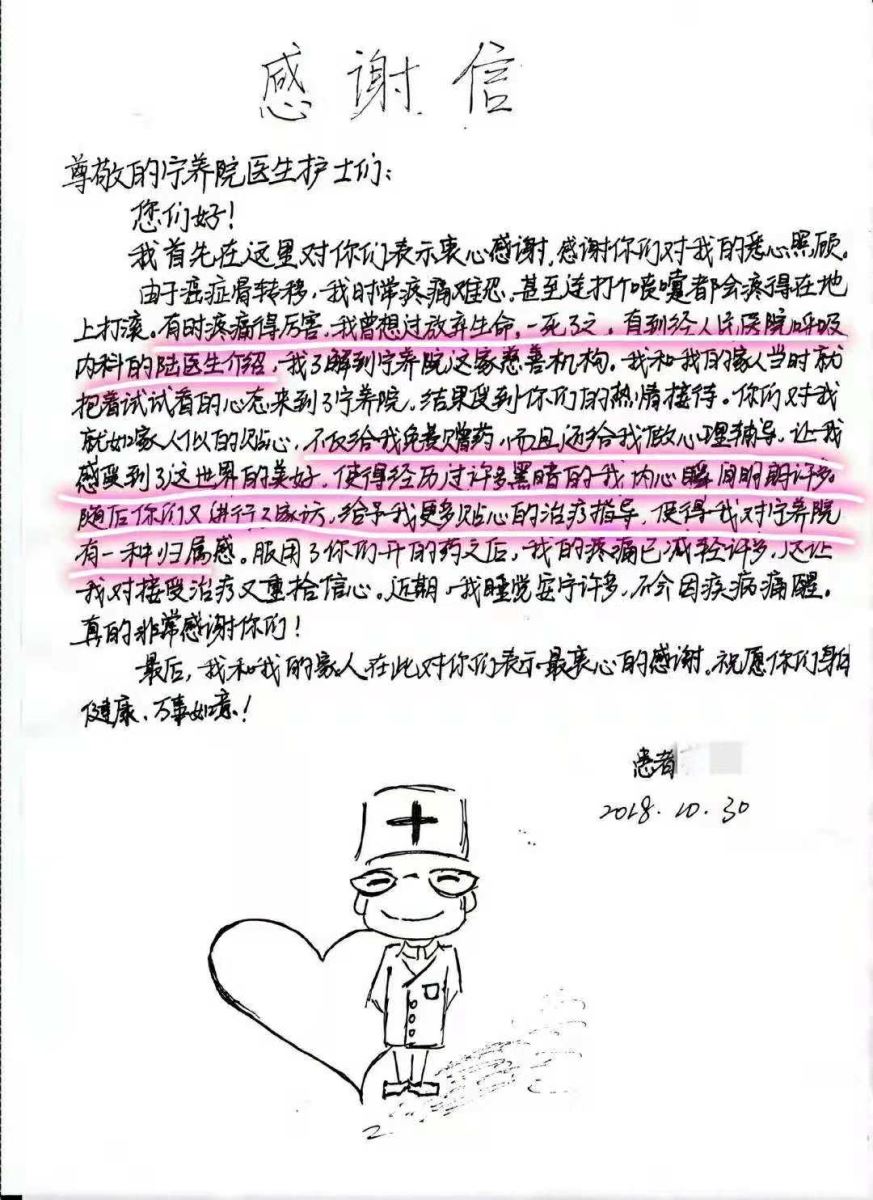 感谢信
尊敬的宁养院医生护士们：
您们好！
我首先在这里对你们表示衷心感谢，感谢你们对我的悉心照顾。
由于癌症骨转移，我时常疼痛难忍，甚至连打个喷嚏都会疼得在地
上打滚。有时疼痛得厉害，我曾想过放弃生命，一死了之，直到经人民医院呼吸
内科的陆医生介绍，我了解到宁养院这家慈善机构。我和我的家人当时就
抱着试试看的心态来到了宁养院，结果受到你们的热情接待。你们对我
就如家人似的贴心，不仅给我免费赠药，而且还给我做心理辅导，让我
感受到了这世界的美好，使得经历过许多黑暗的我，内心瞬间明朗许多。
随后你们又进行了家访，给予我更多贴心的治疗指导，使得我对宁养院
有一种归属感。服用了你们开的药之后，我的疼痛已减轻许多，这让
我对接受治疗又重拾信心。近期，我睡觉安宁许多，不会因疾病痛醒。
真的非常感谢你们！
最后，我和我的家人在此对你们表示最衷心的感谢。祝愿你们身体
健康、万事如意！
患者
2018.10.30